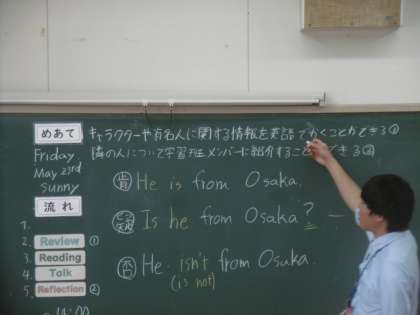 めあて キャラクターや有名人に関する情報を英語でかくことができる①
Friday 隣の人について学習班メンバーに紹介することができる②
May 23rd
sunny
肯 He is from Osaka.
流れ
Is he from Osaka?
1.
2. Review ①
3. Reading
4. Talk
5. Reflection ②
否 He isn't from Osaka.
(is not)